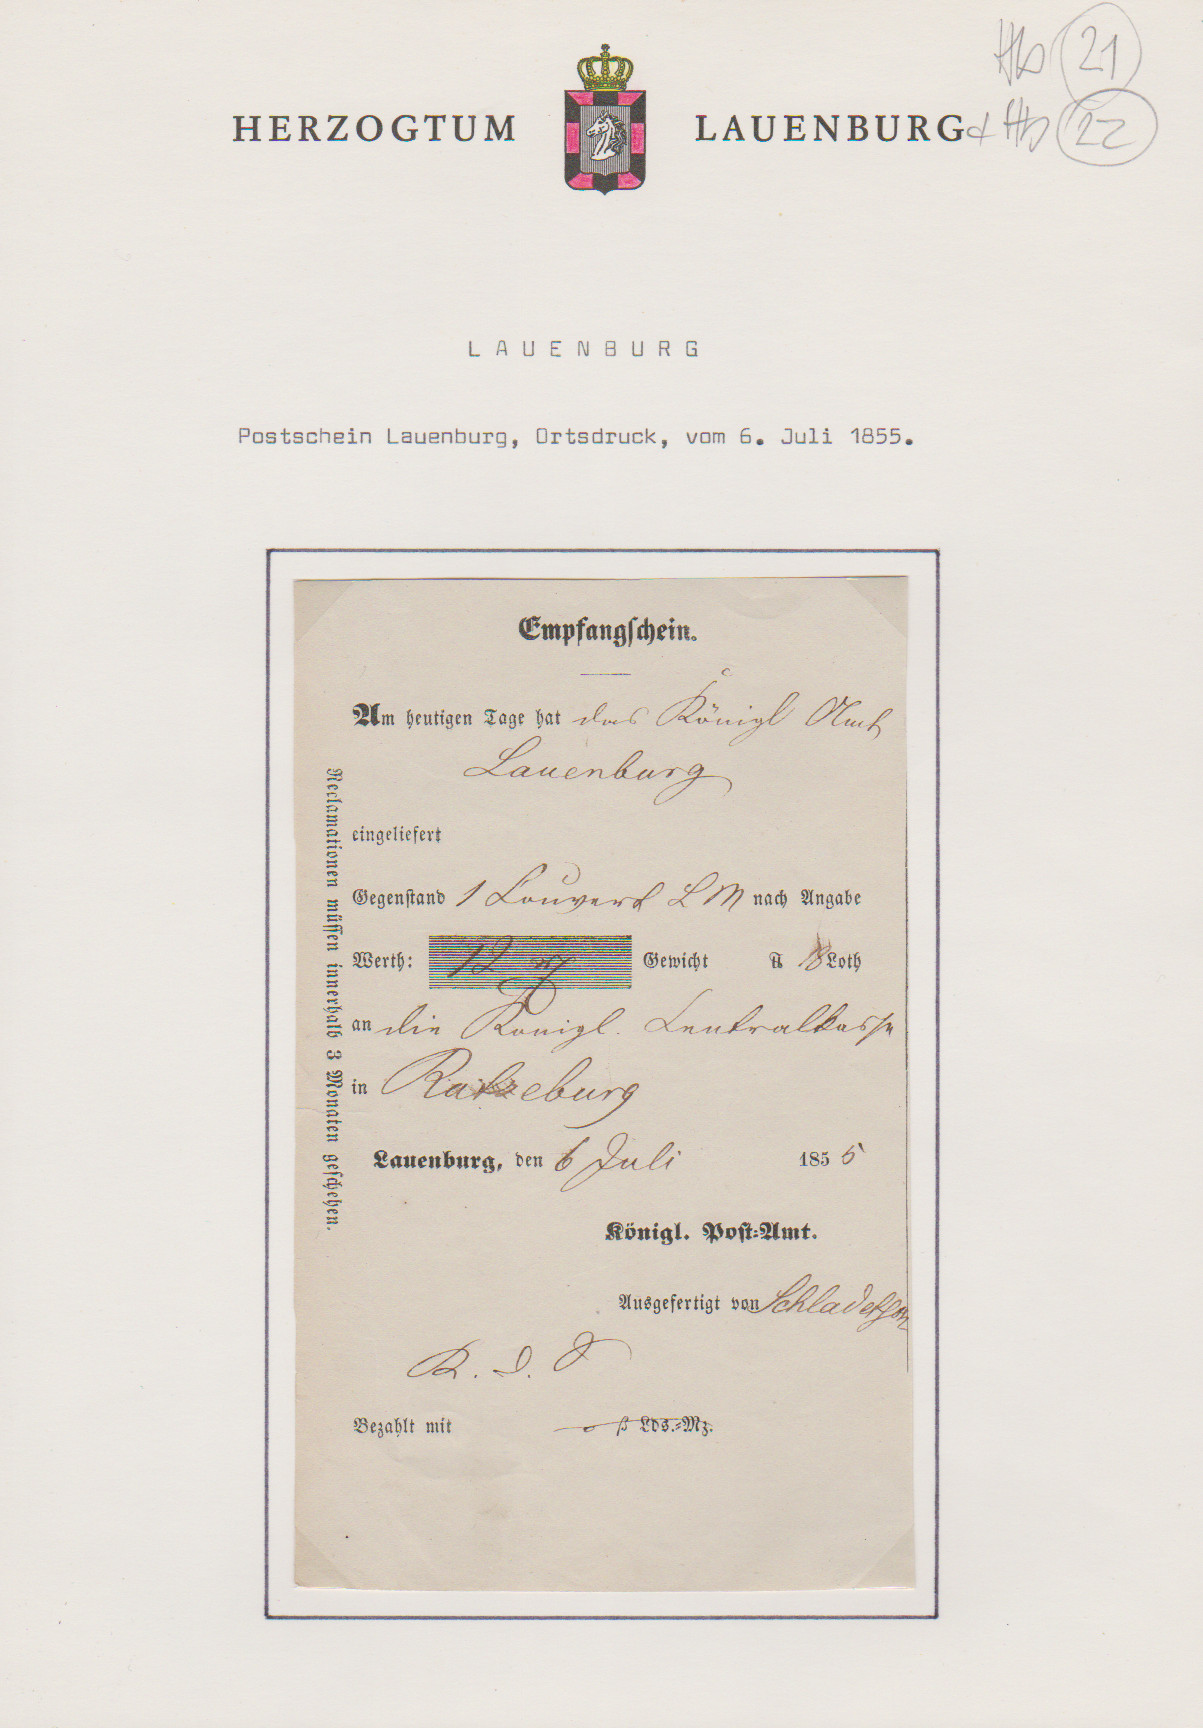 21
HERZOGTUM LAUENBURG
& 22
LAUENBURG
Postschein Lauenburg, Ortsdruck, vom 6. Juli 1855.
Empfangſchein.
Am heutigen Tage hat das Königl Amt
Lauenburg
eingeliefert
Gegenſtand 1 Couvert L M nach Angabe
Werth: 12 Gewicht ℔ 18 Loth
an die Königl. Centralkasse
in Ratzeburg
Lauenburg, den 6 Juli 1855
Königl. Poſt-Amt.
Ausgefertigt von
Bezahlt mit ß Lds.-Mz.
Reclamationen müſſen innerhalb 3 Monaten geſchehen.